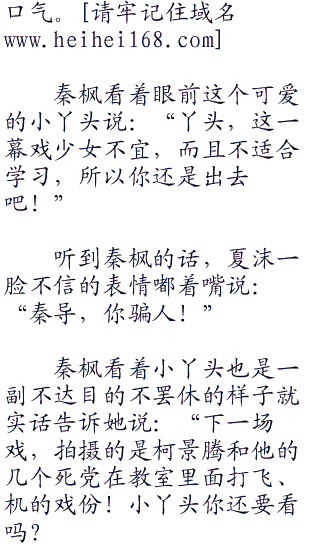 口气。[请牢记住域名
www.heihei168.com]
秦枫看着眼前这个可爱
的小丫头说：“丫头，这一
幕戏少女不宜，而且不适合
学习，所以你还是出去
吧！”
听到秦枫的话，夏沫一
脸不信的表情嘟着嘴说：
“秦导，你骗人！”
秦枫看着小丫头也是一
副不达目的不罢休的样子就
实话告诉她说：“下一场
戏，拍摄的是柯景腾和他的
几个死党在教室里面打飞、
机的戏份！小丫头你还要看
吗？